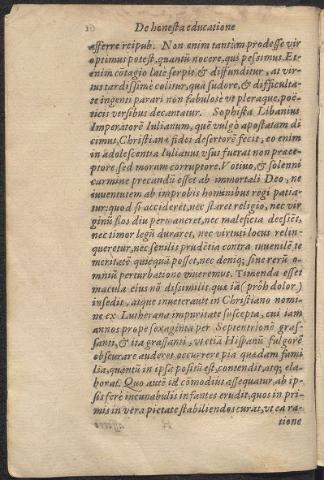 De honesta educatione
afferre reipub. Non enim tantùm prodesse vir
optimus potest, quantũ nocere, qui pessimus. Et-
enim cõtagio latè serpit, & diffunditur, at vir-
tus tardissimè colitur, quà sudore, & difficulta-
te ingenti parari non fabulosè vt pleraque, poë-
ticis versibus decantatur. Sophista Libanius
Imperatorẽ Iulianum, quẽ vulgò apostatam di
cimus, Christianæ fidei desertorẽ fecit, eo enim
in adolescentia Iulianus vsus fuerat non præce-
ptore, sed morum corruptore. Votiuo, & solenni
carmine precandũ esset ab immortali Deo, ne
iuuentutem ab improbis hominibus regi patia-
tur: quod si accideret, nec staret religio, nec vir
ginũ flos diu permaneret, nec maleficia deessẽt,
nec timor legũ duraret, nec virtuti locus relin-
queretur, nec senilis prudẽtia contra iuuenilẽ te
meritatẽ quicquã posset, nec deniq; sine rerũ o-
mniũ perturbatione viueremus. Timenda esset
macula eius nõ dissimilis, quæ iã (prôh dolor)
insedit, atque inueterauit in Christiano nomi-
ne ex Lutherana impuritate suscepta, cui iam
annos prope sexaginta per Septentrionẽ gras-
santi, & ita grassanti, vt etiã Hispanũ fulgorẽ
obscurare auderet occurrere pia quædam fami
lia, quantũ in ipsa positũ est, contendit, atq; ela-
borat. Quo autẽ id cõmodius assequatur, ab ip-
sis ferè incunabulis infantes erudit, quos in pri-
mis in vera pietate stabiliendos curat, vt ea ra-
tione